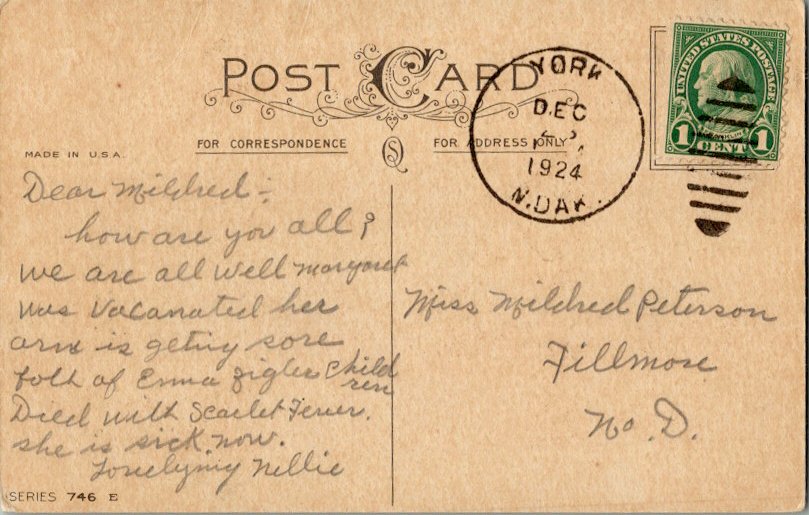 POST CARD
FOR CORRESPONDENCE
FOR ADDRESS ONLY
MADE IN U.S.A.
YORK
DEC
1924
N.DAK.
UNITED STATES POSTAGE
FRANKLIN
1 CENT 1
Dear Mildred:
how are you all?
we are all well margaret
was vacanated her
arm is geting sore
both of Emma Zigler Children
Died with Scarlet Fever.
she is sick now.
Nellie
Miss Mildred Peterson
Fillmore
No. D.
SERIES 746 E